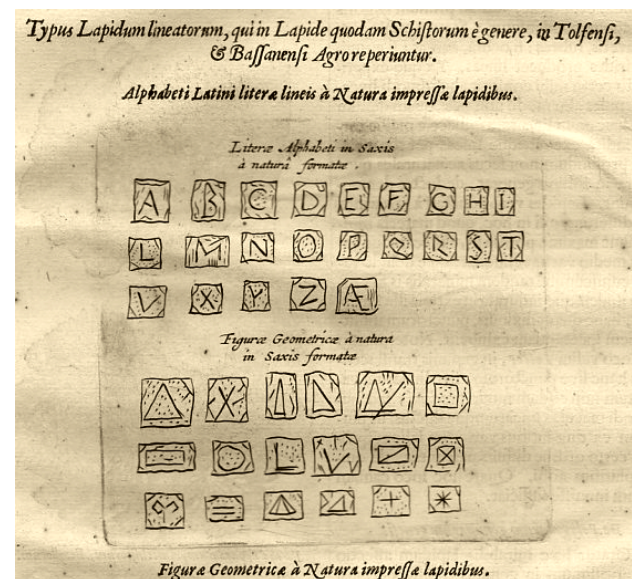 Typus Lapidum lineatorum, qui in Lapide quodam Schiſtorum è genere, in Tolfenſi,
& Baſſanenſi Agro reperiuntur.
Alphabeti Latini literæ lineis à Natura impreſſæ lapidibus.
Literæ Alphabeti in Saxis
à naturâ formatæ.
A B C D E F G H I
L M N O P Q R S T
V X Y Z Æ
Figuræ Geometricæ à natura
in Saxis formatæ
Figuræ Geometricæ à Natura impreſſæ lapidibus.